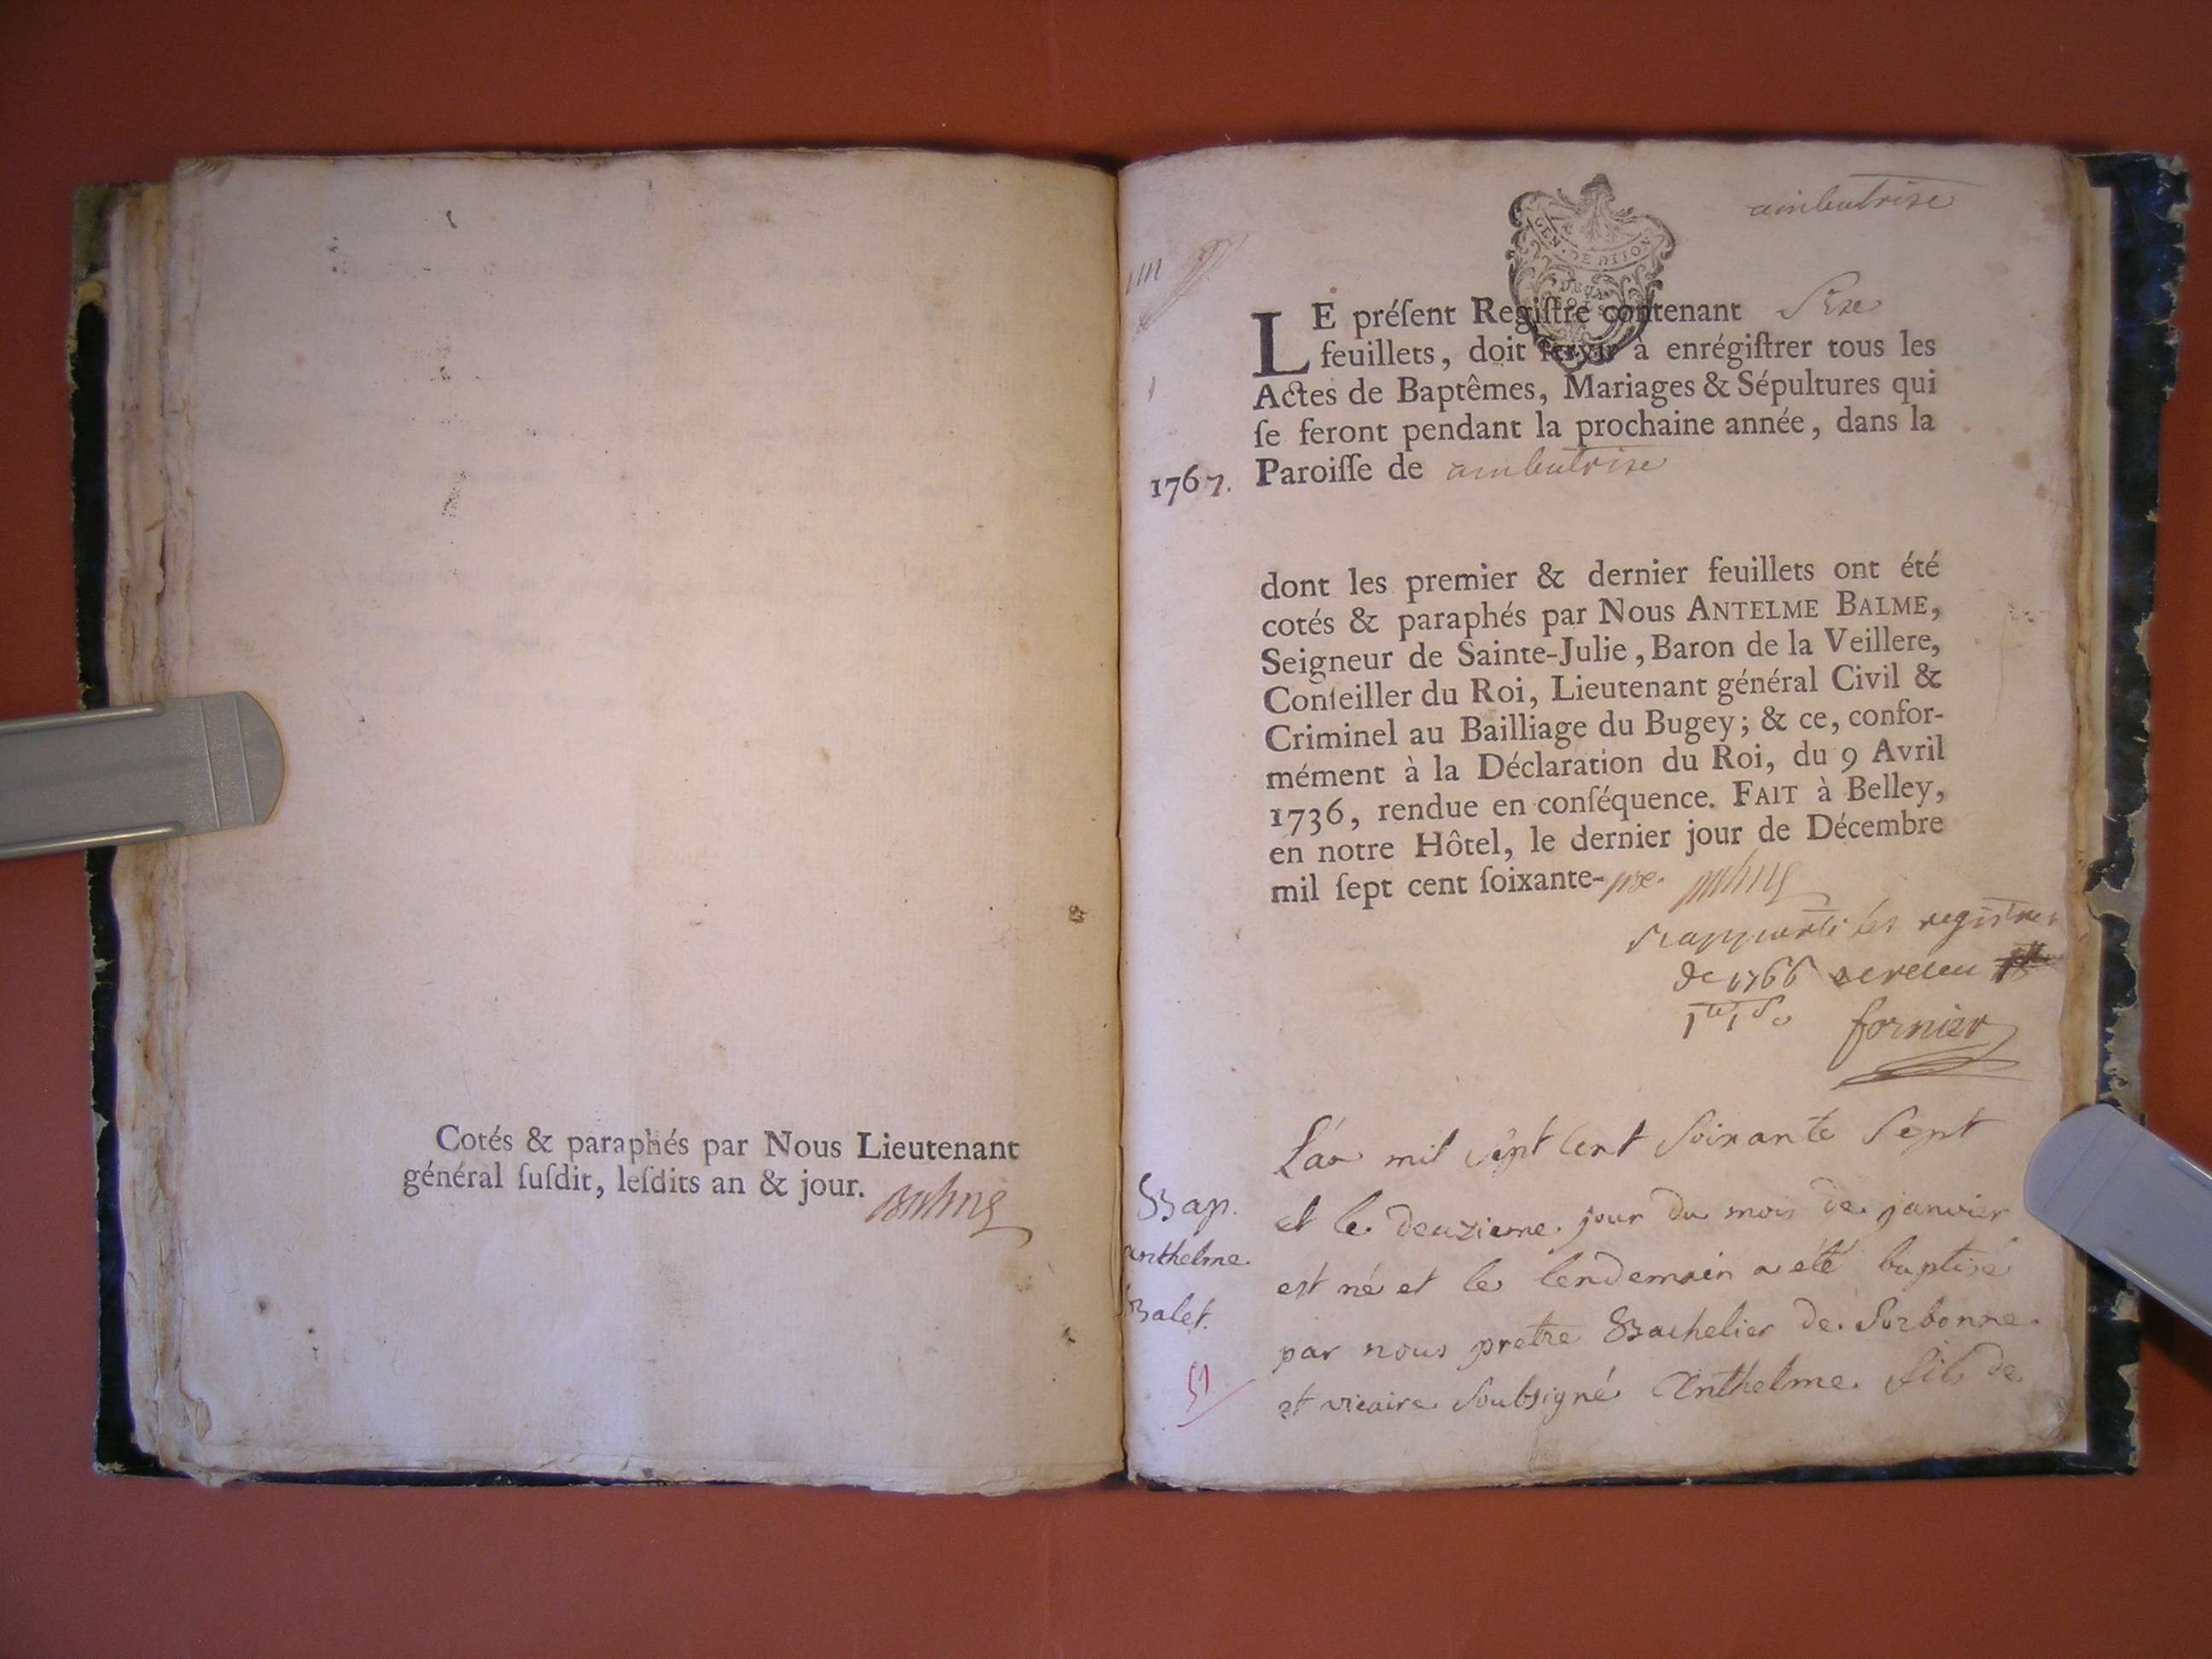 Cotés & paraphés par Nous Lieutenant
général ſuſdit, leſdits an & jour.
ambutrise
GEN. DE DIJON
DEUX
SOLS
LE préſent Regiſtre contenant Six
feuillets, doit ſervir à enrégiſtrer tous les
Actes de Baptêmes, Mariages & Sépultures qui
ſe feront pendant la prochaine année, dans la
1767. Paroiſſe de ambutrise
dont les premier & dernier feuillets ont été
cotés & paraphés par Nous ANTELME BALME,
Seigneur de Sainte-Julie, Baron de la Veillere,
Conſeiller du Roi, Lieutenant général Civil &
Criminel au Bailliage du Bugey; & ce, confor-
mément à la Déclaration du Roi, du 9 Avril
1736, rendue en conſéquence. FAIT à Belley,
en notre Hôtel, le dernier jour de Décembre
mil ſept cent ſoixante-
rapporté les registres
de 1766
fornier
L'an mil sept cent Soixante Sept
Bap. et le deuzieme jour du mois de janvier
anthelme est né et le lendemain a été baptisé
Balet. par nous pretre Bachelier de Sorbonne
et vicaire Soubsigné Anthelme fils de